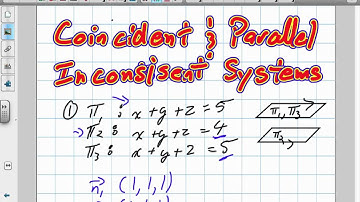 Coincident & Parallel
Inconsisent Systems
① π₁ : x+y+z=5
π₂ : x+y+z=4
π₃ : x+y+z=5
π₁, π₃
π₂
n₁ (1,1,1)